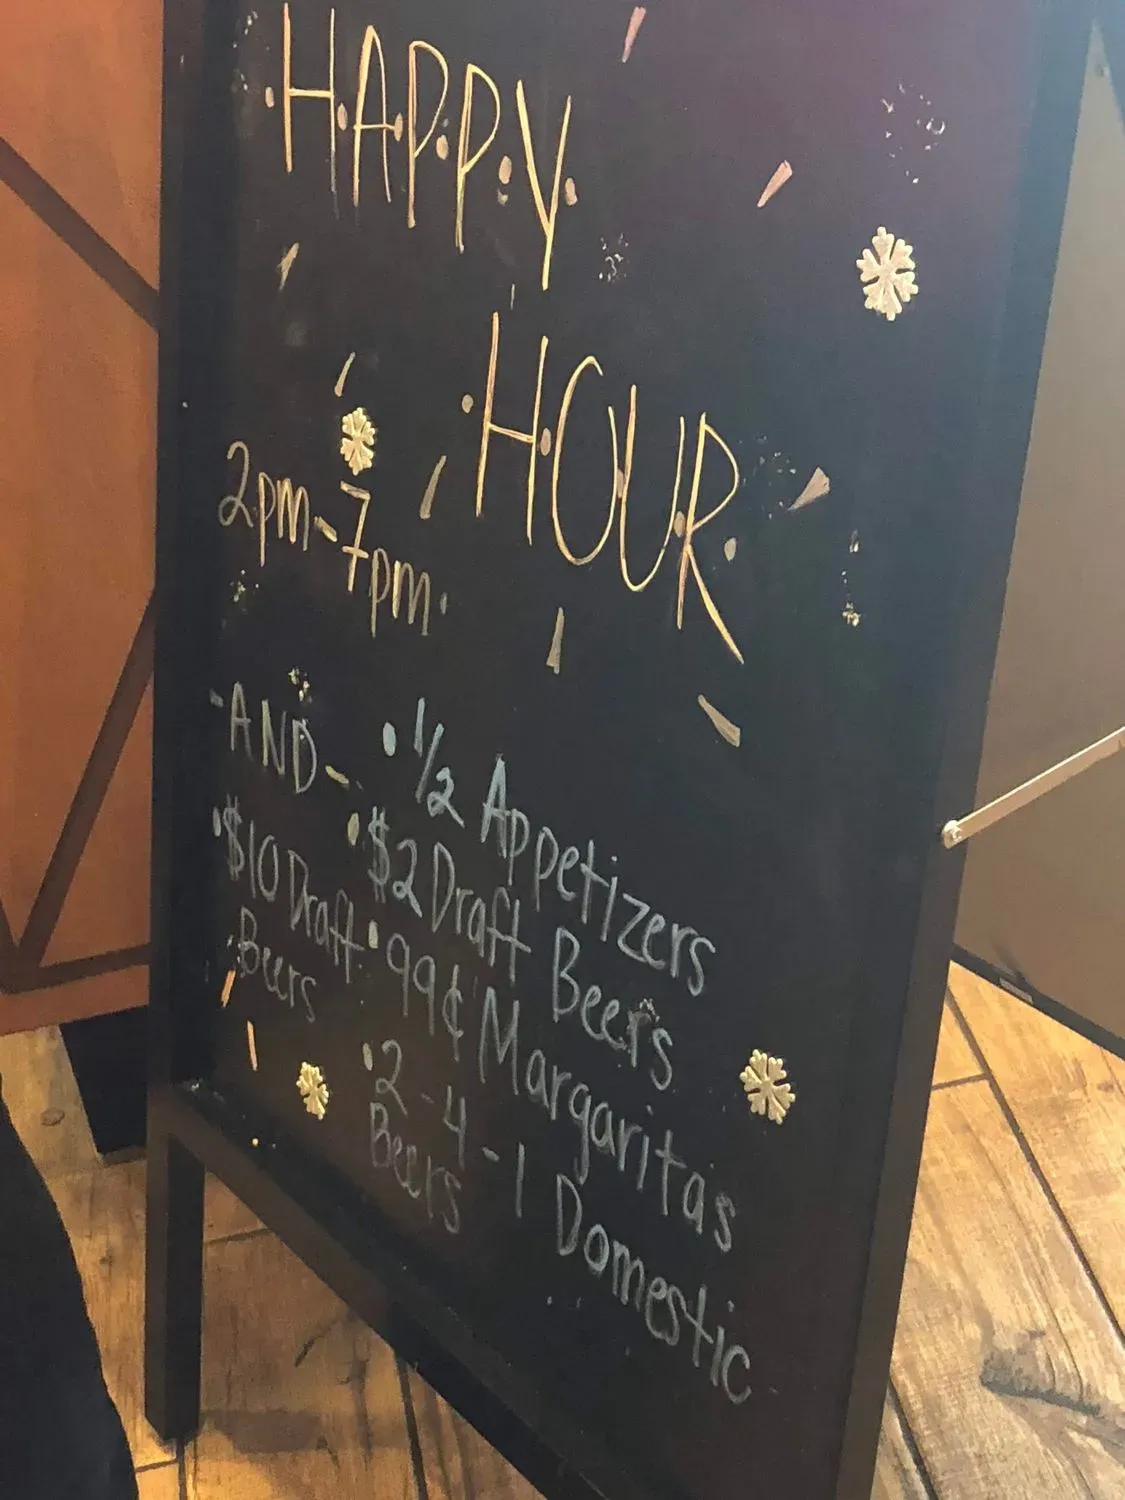 HAPPY
HOUR
2pm-7pm
-AND-
$10 Draft
Beers
1/2 Appetizers
$2 Draft Beers
99¢ Margaritas
2-4-1 Domestic
Beers